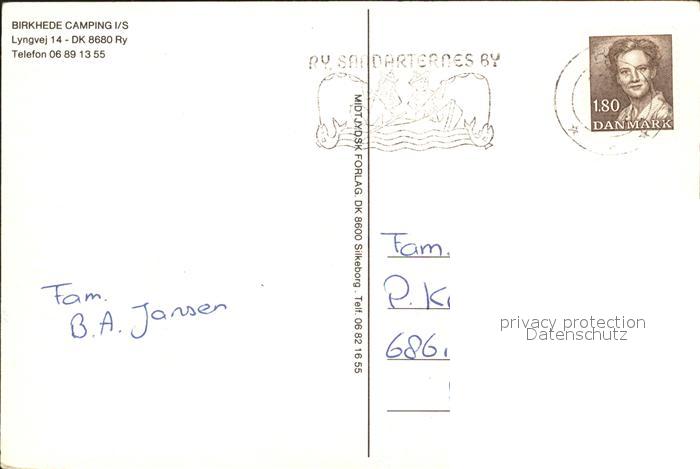 BIRKHEDE CAMPING I/S
Lyngvej 14 - DK 8680 Ry
Telefon 06 89 13 55
RY. SANDARTERNES BY
1.80
DANMARK
MIDTJYDSK FORLAG. DK 8600 Silkeborg. Telf. 06 82 16 55
Fam.
B.A. Jansen
Fam.
P. K
686
privacy protection
Datenschutz